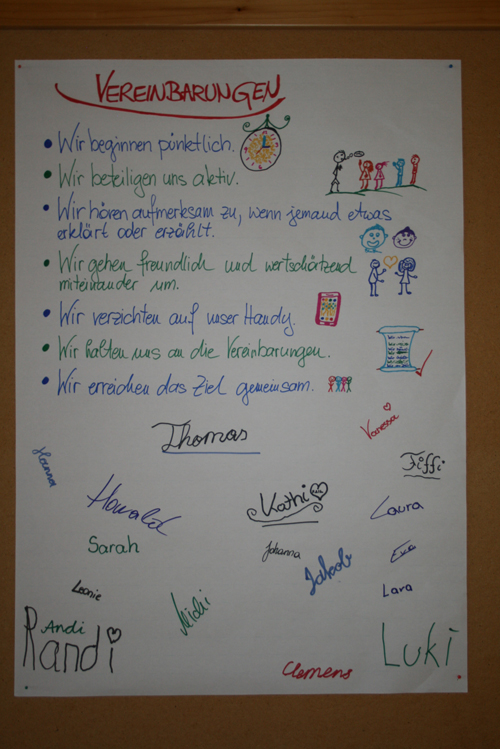 VEREINBARUNGEN
• Wir beginnen pünktlich.
• Wir beteiligen uns aktiv.
• Wir hören aufmerksam zu, wenn jemand etwas
erklärt oder erzählt.
• Wir gehen freundlich und wertschätzend
miteinander um.
• Wir verzichten auf unser Handy.
• Wir halten uns an die Vereinbarungen.
• Wir erreichen das Ziel gemeinsam.
Vanessa
Thomas
Hanna
Fiffi
Harald
Kathi
Laura
Sarah
Johanna
Jakob
Eva
Leonie
Michi
Lara
Andi
Randi
Luki
Clemens